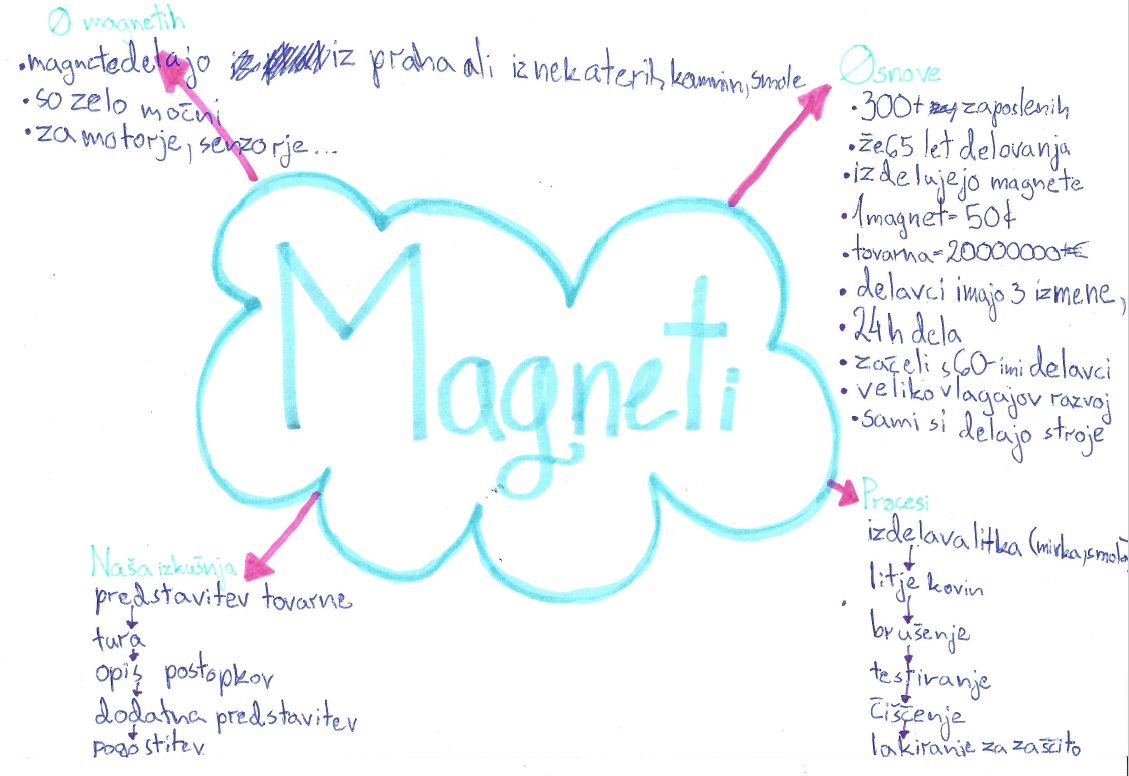 O magnetih
• magnete delajo iz iz praha ali iz nekaterih kamnin, smole
• so zelo močni
• za motorje, senzorje...
Osnove
• 300+ zaposlenih
• že 65 let delovanja
• izdelujejo magnete
• 1 magnet = 50¢
• tovarna = 20000000€
• delavci imajo 3 izmene,
• 24h dela
• začeli s 60-imi delavci
• veliko vlagajo v razvoj
• sami si delajo stroje
Magneti
Naša izkušnja
predstavitev tovarne
tura
opis postopkov
dodatna predstavitev
pogostitev
Procesi
izdelava litka (mivka, smola
litje kovin
brušenje
testiranje
čiščenje
lakiranje za zaščito